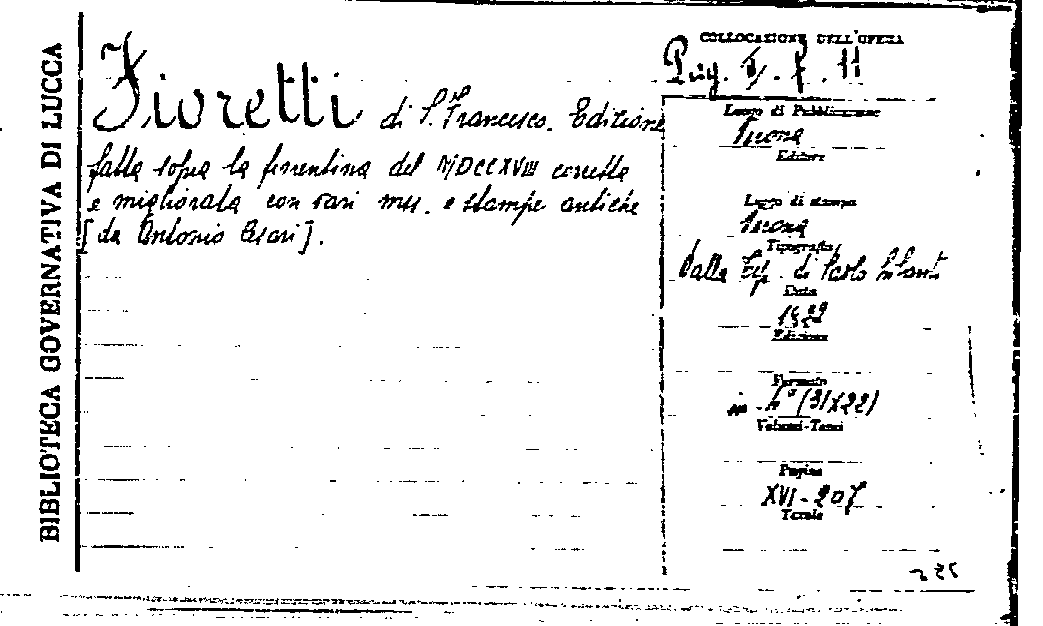 BIBLIOTECA GOVERNATIVA DI LUCCA
Fioretti di S. Francesco. Edizione
fatta sopra la fiorentina del MDCCXVIII corretta
e migliorata con vari mss. e stampe antiche
[da Antonio Cesari].
COLLOCAZIONE DELL'OPERA
11
Luogo di Pubblicazione
Verona
Editore
Luogo di stampa
Verona
Tipografia
dalla Tip. di Paolo Libanti
Data
1822
Edizione
Formato
in-4° (31x22)
Volumi-Tomi
Pagine
XVI-207
Tavole